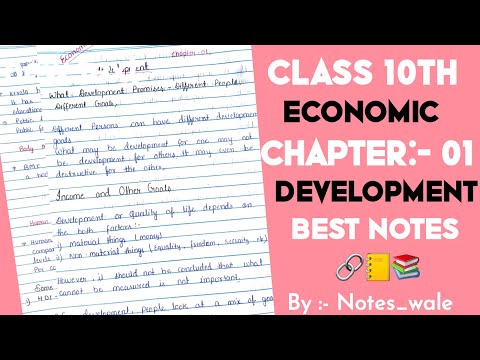 Chapter-01
What Development Promises - Different People,
Different Goals,
Different Persons can have different development
goals
What may be development for one may not
be development for others. It may even be
destructive for the other.
Income and Other Goals
Development or quality of life depends on
the both factors :-
i) material things (money)
ii) Non-material things (Equality, freedom, security, etc)
However, it should not be concluded that what
cannot be measured is not important.
development, people look at a mix of goals
CLASS 10TH
ECONOMIC
CHAPTER:- 01
DEVELOPMENT
BEST NOTES
By :- Notes_wale